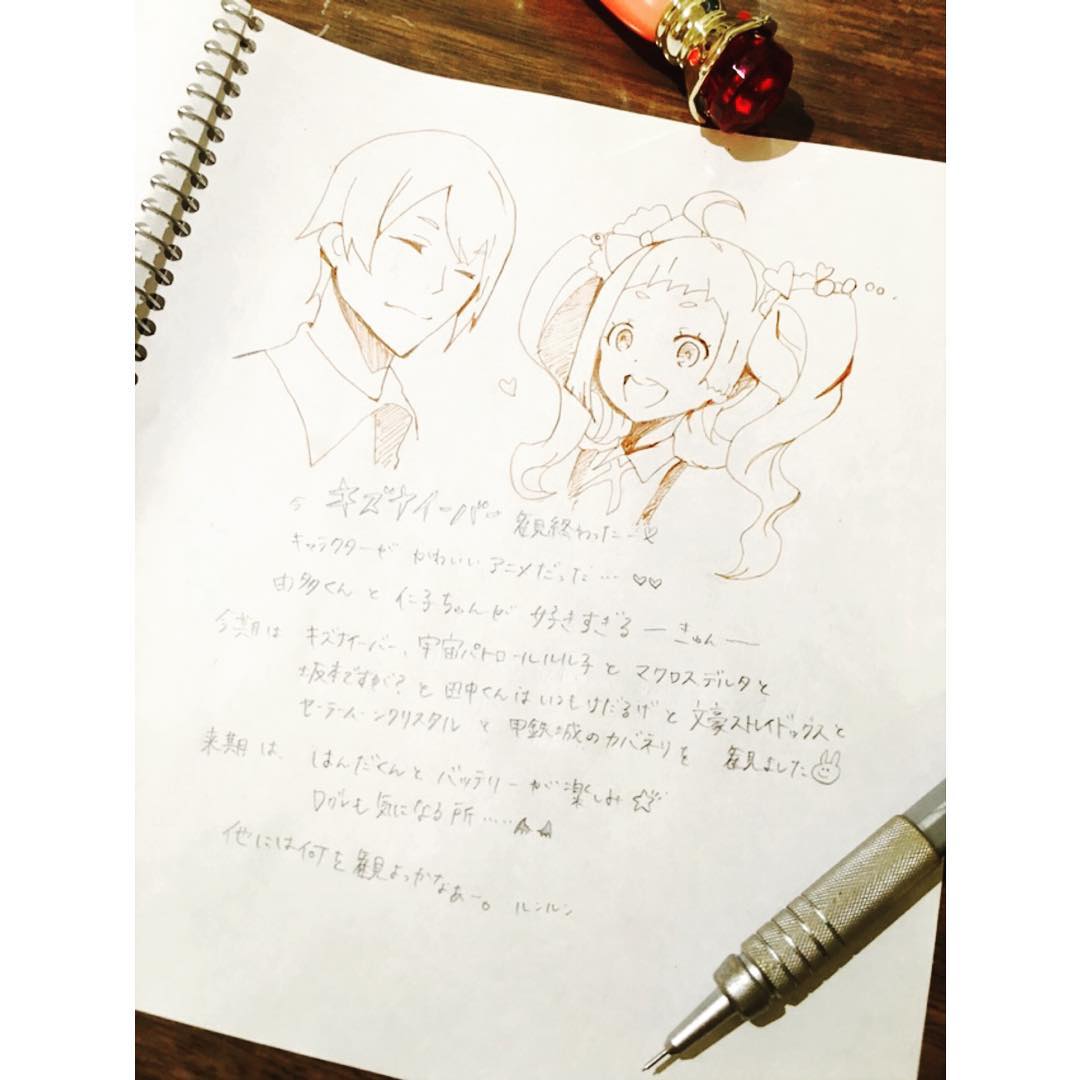 今 キズナイーバー 観終わったー♡
キャラクターが かわいい アニメだった… ♡♡
由多くん と 仁子ちゃんが 好きすぎる ー きゅん ー
今期は キズナイーバー、宇宙パトロールルル子 と マクロスデルタと
坂本ですが？ と 田中くんはいつもけだるげ と 文豪ストレイドッグスと
セーラームーンクリスタル と 甲鉄城のカバネリを 観ました
来期 は、 はんだくんと バッテリー が 楽しみ ☆
も 気になる 所……
他には何を 観よっかなぁー。 ルンルン